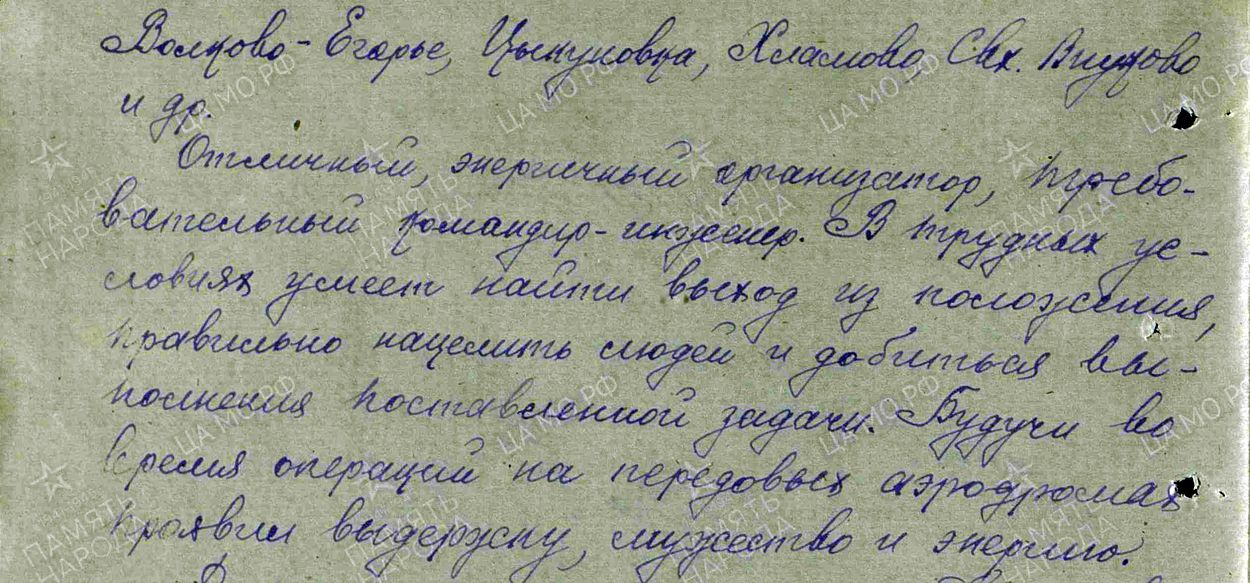 Волково-Егорье, Цыкуновка, Хламово, Свх. Внуково
и др.
Отличный, энергичный организатор, требо-
вательный командир-инженер. В трудных ус-
ловиях умеет найти выход из положения,
правильно нацелить людей и добиться вы-
полнения поставленной задачи. Будучи во
время операций на передовых аэродромах
проявил выдержку, мужество и энергию.